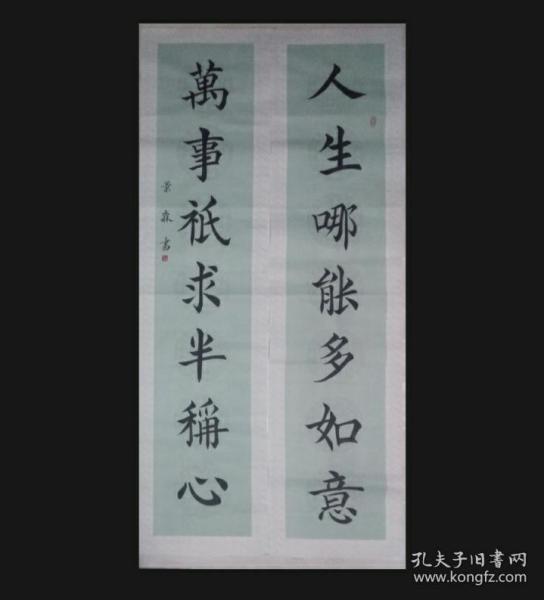 人生哪能多如意
萬事祇求半稱心
景森書
孔夫子旧书网
www.kongfz.com